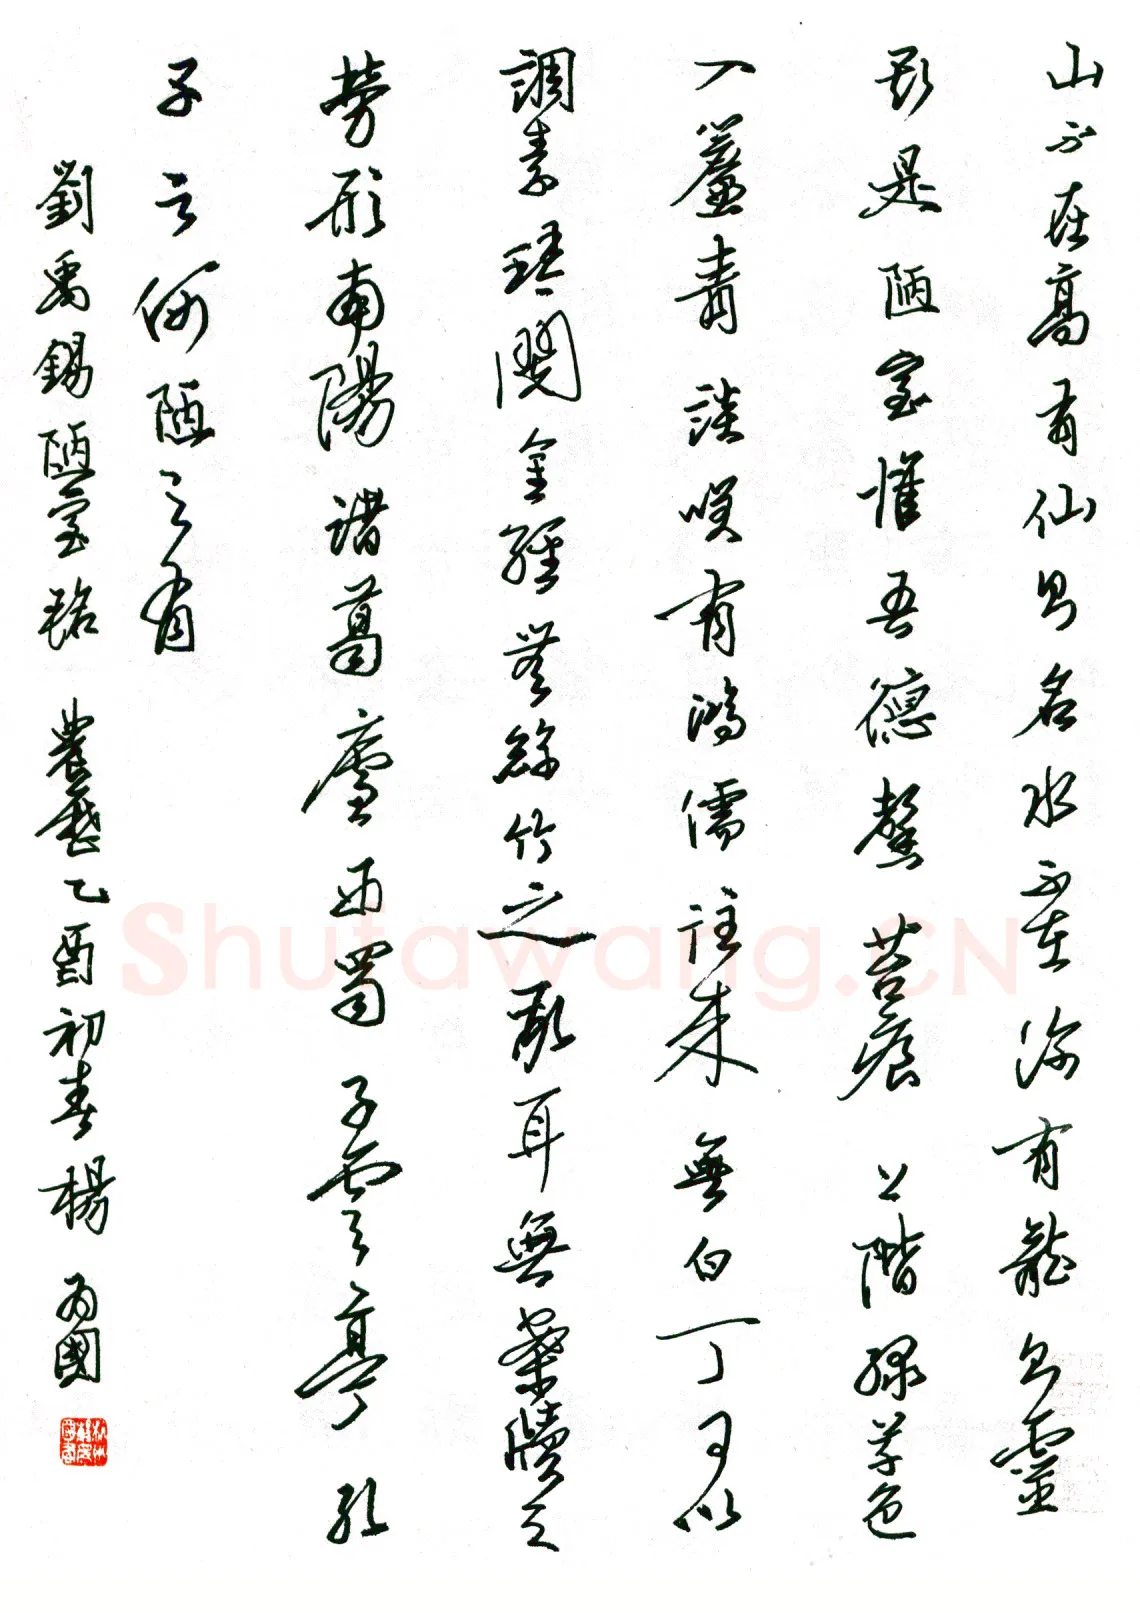 山不在高有仙則名水不在深有龍則靈
斯是陋室惟吾德馨苔痕上階綠草色
入簾青談笑有鴻儒往來無白丁可以
調素琴閱金經無絲竹之亂耳無案牘之
勞形南陽諸葛廬西蜀子雲亭孔
子云何陋之有
劉禹錫陋室銘 農曆乙酉初春楊為國
Shufawang.CN